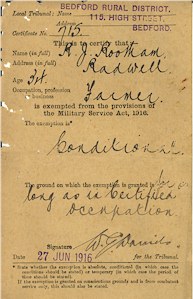 Local Tribunal: Name
BEDFORD RURAL DISTRICT.
Address
115, HIGH STREET,
BEDFORD.
Certificate No. 715
This is to certify that:—
Name (in full) H. J. Rootham
Address (in full) Radwell
Age 34
Occupation, profession or business Farmer
is exempted from the provisions of
the Military Service Act, 1916.
The exemption is*
Conditional
The ground on which the exemption is granted is for so
long as in Certified
Occupation
Signature
for the Tribunal.
Date 27 JUN 1916
* State whether the exemption is absolute, conditional (in which case the
conditions should be stated) or temporary (in which case the period of
time should be stated).
If the exemption is granted on conscientious grounds and is from combatant
service only, this should also be stated.